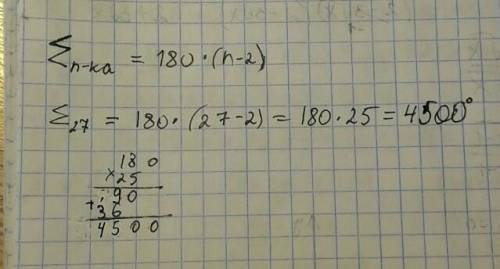 Σn-ка = 180·(n-2)
Σ27 = 180·(27-2) = 180·25 = 4500°
180
×25
90
+36
4500